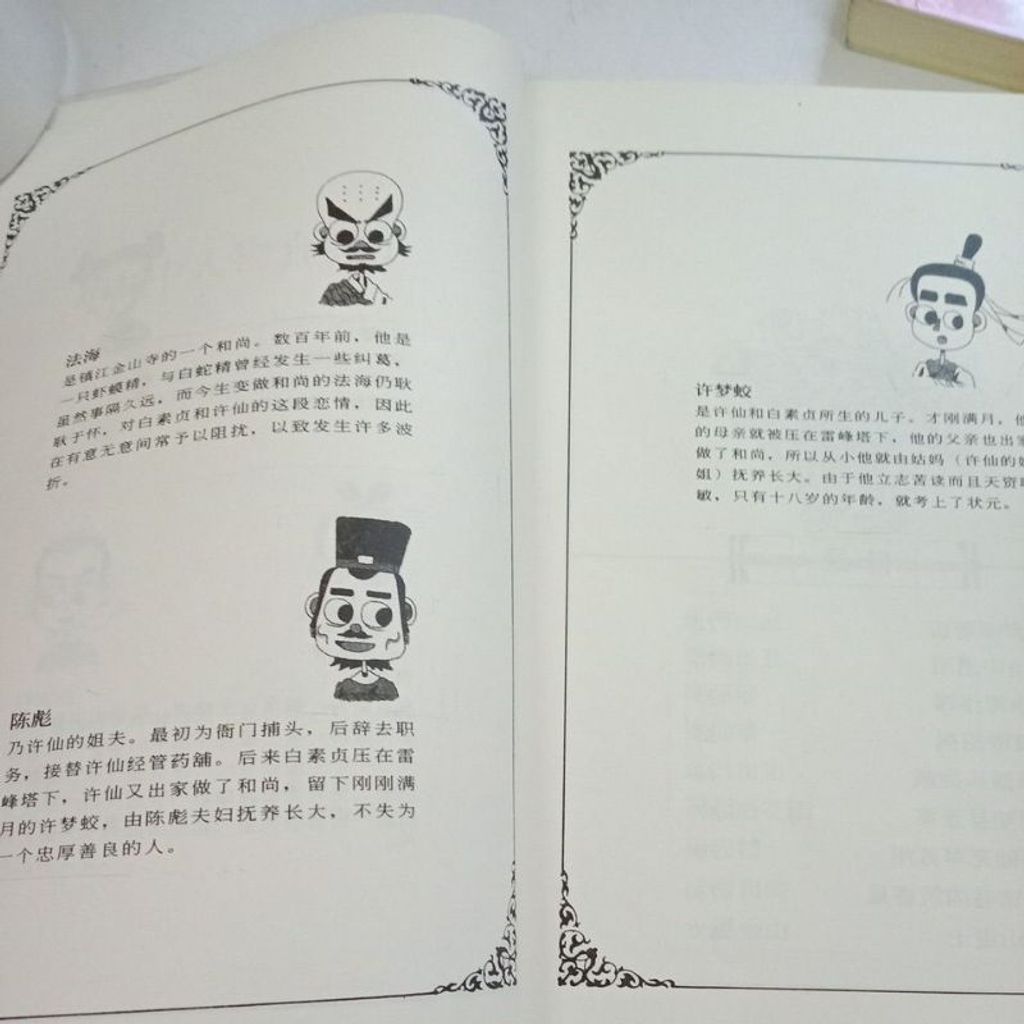 法海
是镇江金山寺的一个和尚。数百年前，他是
一只虾蟆精，与白蛇精曾经发生一些纠葛，
虽然事隔久远，而今生变做和尚的法海仍耿
耿于怀，对白素贞和许仙的这段恋情，因此
在有意无意间常予以阻扰，以致发生许多波
折。
陈彪
乃许仙的姐夫。最初为衙门捕头，后辞去职
务，接替许仙经管药舖。后来白素贞压在雷
峰塔下，许仙又出家做了和尚，留下刚刚满
月的许梦蛟，由陈彪夫妇抚养长大，不失为
一个忠厚善良的人。
许梦蛟
是许仙和白素贞所生的儿子。才刚满月，他
的母亲就被压在雷峰塔下，他的父亲也出家
做了和尚，所以从小他就由姑妈（许仙的姐
姐）抚养长大。由于他立志苦读而且天资聪
敏，只有十八岁的年龄，就考上了状元。